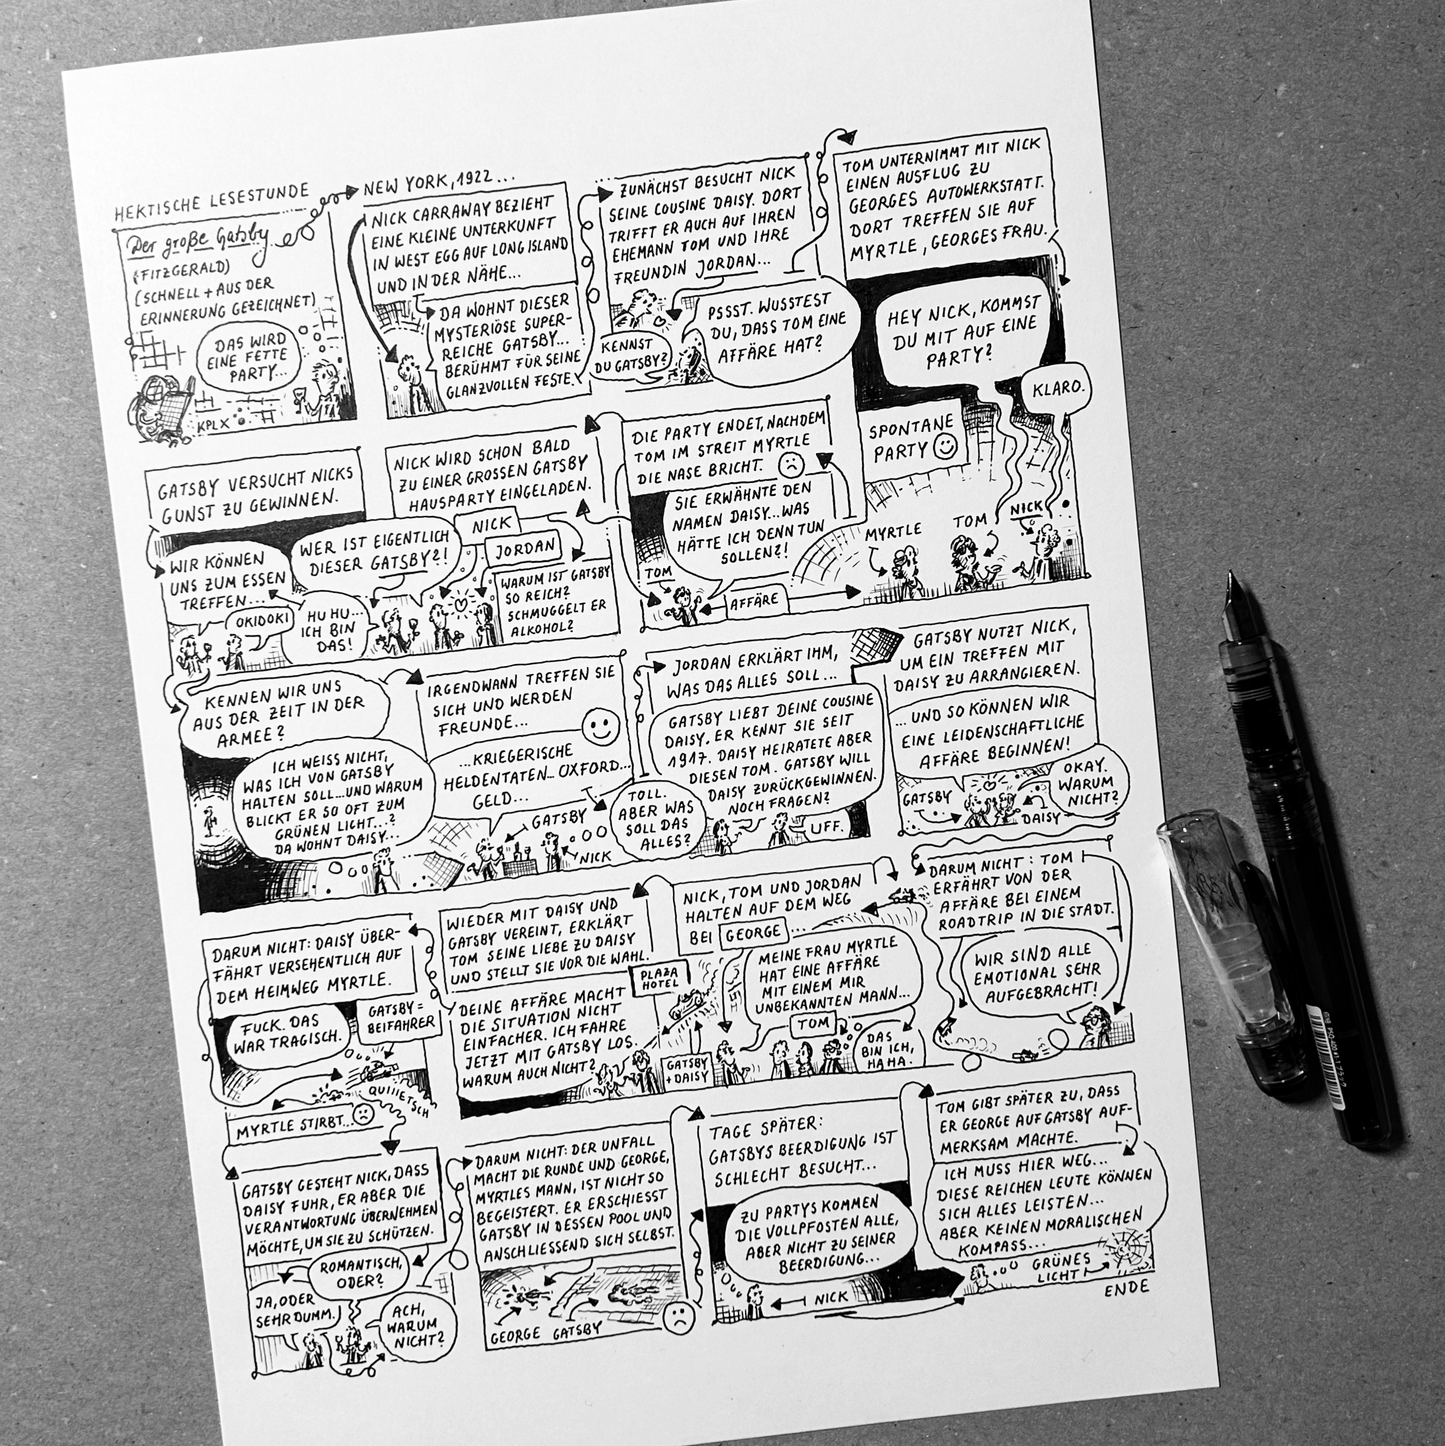 HEKTISCHE LESESTUNDE
Der große Gatsby
(FITZGERALD)
(SCHNELL + AUS DER
ERINNERUNG GEZEICHNET)
DAS WIRD
EINE FETTE
PARTY...
KPLX
NEW YORK, 1922...
NICK CARRAWAY BEZIEHT
EINE KLEINE UNTERKUNFT
IN WEST EGG AUF LONG ISLAND
UND IN DER NÄHE...
DA WOHNT DIESER
MYSTERIÖSE SUPER-
REICHE GATSBY...
BERÜHMT FÜR SEINE
GLANZVOLLEN FESTE.
...ZUNÄCHST BESUCHT NICK
SEINE COUSINE DAISY. DORT
TRIFFT ER AUCH AUF IHREN
EHEMANN TOM UND IHRE
FREUNDIN JORDAN...
KENNST
DU GATSBY?
PSSST. WUSSTEST
DU, DASS TOM EINE
AFFÄRE HAT?
TOM UNTERNIMMT MIT NICK
EINEN AUSFLUG ZU
GEORGES AUTOWERKSTATT.
DORT TREFFEN SIE AUF
MYRTLE, GEORGES FRAU.
HEY NICK, KOMMST
DU MIT AUF EINE
PARTY?
KLARO.
SPONTANE
PARTY
MYRTLE
TOM
NICK
DIE PARTY ENDET, NACHDEM
TOM IM STREIT MYRTLE
DIE NASE BRICHT.
SIE ERWÄHNTE DEN
NAMEN DAISY...WAS
HÄTTE ICH DENN TUN
SOLLEN?!
TOM
AFFÄRE
NICK WIRD SCHON BALD
ZU EINER GROSSEN GATSBY
HAUSPARTY EINGELADEN.
NICK
JORDAN
WER IST EIGENTLICH
DIESER GATSBY?!
WARUM IST GATSBY
SO REICH?
SCHMUGGELT ER
ALKOHOL?
HU HU...
ICH BIN
DAS!
GATSBY VERSUCHT NICKS
GUNST ZU GEWINNEN.
WIR KÖNNEN
UNS ZUM ESSEN
TREFFEN...
OKIDOKI
KENNEN WIR UNS
AUS DER ZEIT IN DER
ARMEE?
ICH WEISS NICHT,
WAS ICH VON GATSBY
HALTEN SOLL...UND WARUM
BLICKT ER SO OFT ZUM
GRÜNEN LICHT...?
DA WOHNT DAISY...
IRGENDWANN TREFFEN SIE
SICH UND WERDEN
FREUNDE...
...KRIEGERISCHE
HELDENTATEN... OXFORD...
GELD...
GATSBY
NICK
TOLL.
ABER WAS
SOLL DAS
ALLES?
JORDAN ERKLÄRT IHM,
WAS DAS ALLES SOLL...
GATSBY LIEBT DEINE COUSINE
DAISY. ER KENNT SIE SEIT
1917. DAISY HEIRATETE ABER
DIESEN TOM. GATSBY WILL
DAISY ZURÜCKGEWINNEN.
NOCH FRAGEN?
UFF.
GATSBY NUTZT NICK,
UM EIN TREFFEN MIT
DAISY ZU ARRANGIEREN.
...UND SO KÖNNEN WIR
EINE LEIDENSCHAFTLICHE
AFFÄRE BEGINNEN!
OKAY.
WARUM
NICHT?
GATSBY
DAISY
DARUM NICHT: TOM
ERFÄHRT VON DER
AFFÄRE BEI EINEM
ROADTRIP IN DIE STADT.
WIR SIND ALLE
EMOTIONAL SEHR
AUFGEBRACHT!
NICK, TOM UND JORDAN
HALTEN AUF DEM WEG
BEI GEORGE...
MEINE FRAU MYRTLE
HAT EINE AFFÄRE
MIT EINEM MIR
UNBEKANNTEN MANN...
TOM
DAS
BIN ICH,
HAHA.
GATSBY
+ DAISY
WIEDER MIT DAISY UND
GATSBY VEREINT, ERKLÄRT
TOM SEINE LIEBE ZU DAISY
UND STELLT SIE VOR DIE WAHL.
PLAZA
HOTEL
DEINE AFFÄRE MACHT
DIE SITUATION NICHT
EINFACHER. ICH FAHRE
JETZT MIT GATSBY LOS.
WARUM AUCH NICHT?
DARUM NICHT: DAISY ÜBER-
FÄHRT VERSEHENTLICH AUF
DEM HEIMWEG MYRTLE.
FUCK. DAS
WAR TRAGISCH.
GATSBY =
BEIFAHRER
QUIIIETSCH
MYRTLE STIRBT...
GATSBY GESTEHT NICK, DASS
DAISY FUHR, ER ABER DIE
VERANTWORTUNG ÜBERNEHMEN
MÖCHTE, UM SIE ZU SCHÜTZEN.
ROMANTISCH,
ODER?
JA, ODER
SEHR DUMM.
ACH,
WARUM
NICHT?
DARUM NICHT: DER UNFALL
MACHT DIE RUNDE UND GEORGE,
MYRTLES MANN, IST NICHT SO
BEGEISTERT. ER ERSCHIESST
GATSBY IN DESSEN POOL UND
ANSCHLIESSEND SICH SELBST.
GEORGE GATSBY
TAGE SPÄTER:
GATSBYS BEERDIGUNG IST
SCHLECHT BESUCHT...
ZU PARTYS KOMMEN
DIE VOLLPFOSTEN ALLE,
ABER NICHT ZU SEINER
BEERDIGUNG...
NICK
TOM GIBT SPÄTER ZU, DASS
ER GEORGE AUF GATSBY AUF-
MERKSAM MACHTE.
ICH MUSS HIER WEG...
DIESE REICHEN LEUTE KÖNNEN
SICH ALLES LEISTEN...
ABER KEINEN MORALISCHEN
KOMPASS...
GRÜNES
LICHT
ENDE